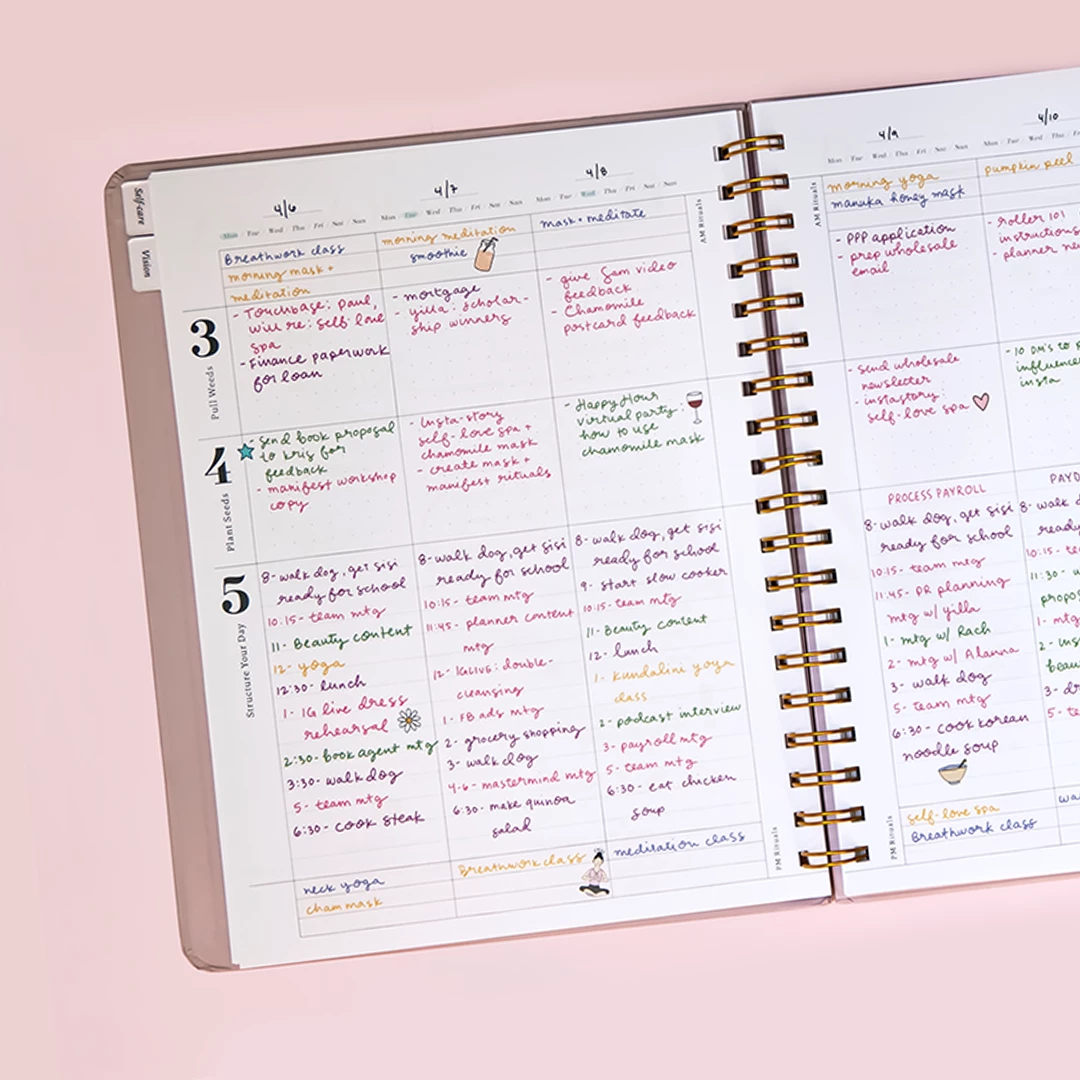 Self-care
Vision
4/6
Mon / Tue / Wed / Thu / Fri / Sat / Sun
Breathwork class
morning mask +
meditation
3
Pull Weeds
- Touchbase: Paul,
will re: self love
spa
- Finance paperwork
for loan
4
Plant Seeds
- Send book proposal
to Kris for
feedback
- manifest workshop
copy
5
Structure Your Day
8- walk dog, get sisi
ready for school
10:15- team mtg
11- Beauty content
12- yoga
12:30- lunch
1- IG live dress
rehearsal
2:30- book agent mtg
3:30- walk dog
5- team mtg
6:30- cook steak
neck yoga
cham mask
4/7
Mon / Tue / Wed / Thu / Fri / Sat / Sun
morning meditation
smoothie
- mortgage
- yilla: scholar-
ship winners
- Insta-story
self-love spa +
chamomile mask
- create mask +
manifest rituals
8- walk dog, get sisi
ready for school
10:15- team mtg
11:45- planner content
mtg
12- IGLIVE: double-
cleansing
1- FB ads mtg
2- grocery shopping
3- walk dog
4-6- mastermind mtg
6:30- make quinoa
salad
Breathwork class
4/8
Mon / Tue / Wed / Thu / Fri / Sat / Sun
mask + meditate
- give Sam video
feedback
- Chamomile
postcard feedback
- Happy Hour
virtual party:
how to use
chamomile mask
8- walk dog, get sisi
ready for school
9- start slow cooker
10:15- team mtg
11- Beauty content
12- lunch
1- kundalini yoga
class
2- podcast interview
3- payroll mtg
5- team mtg
6:30- eat chicken
soup
meditation class
AM Rituals
PM Rituals
AM Rituals
PM Rituals
4/9
Mon / Tue / Wed / Thu / Fri / Sat / Sun
morning yoga
manuka honey mask
- PPP application
- prep wholesale
email
- send wholesale
newsletter
- instastory:
self-love spa
PROCESS PAYROLL
8- walk dog, get sisi
ready for school
10:15- team mtg
11:45- PR planning
mtg w/ yilla
1- mtg w/ Rach
2- mtg w/ Alanna
3- walk dog
5- team mtg
6:30- cook korean
noodle soup
self-love spa
Breathwork class
4/10
Mon / Tue / Wed / Thu / Fri
pumpkin peel
- roller 101
instructions
- planner
- 10 DM's to
insta
8- walk
ready
10:15-
11:30-
1-
2-
3-
5-